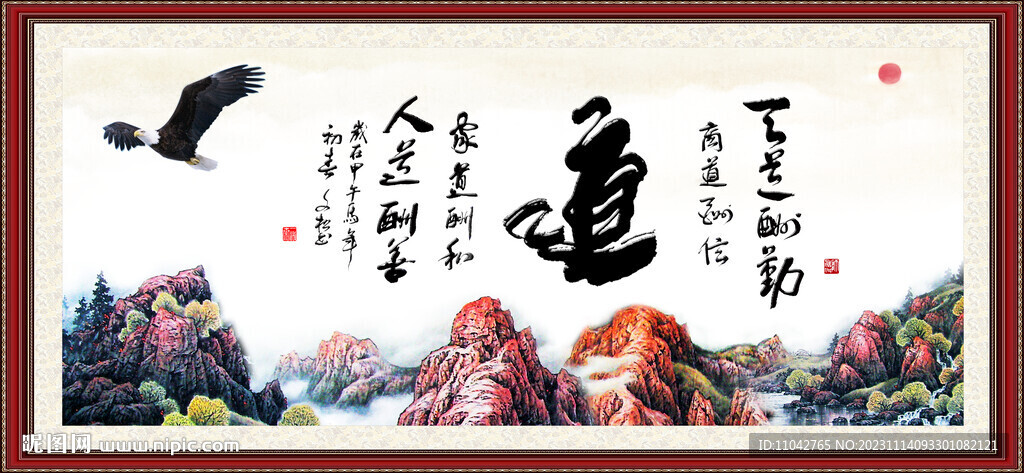 天道酬勤
商道酬信
道
家道酬和
人道酬善
歲在甲午馬年
初春
昵图网 www.nipic.com
ID:11042765 NO:20231114093301082121